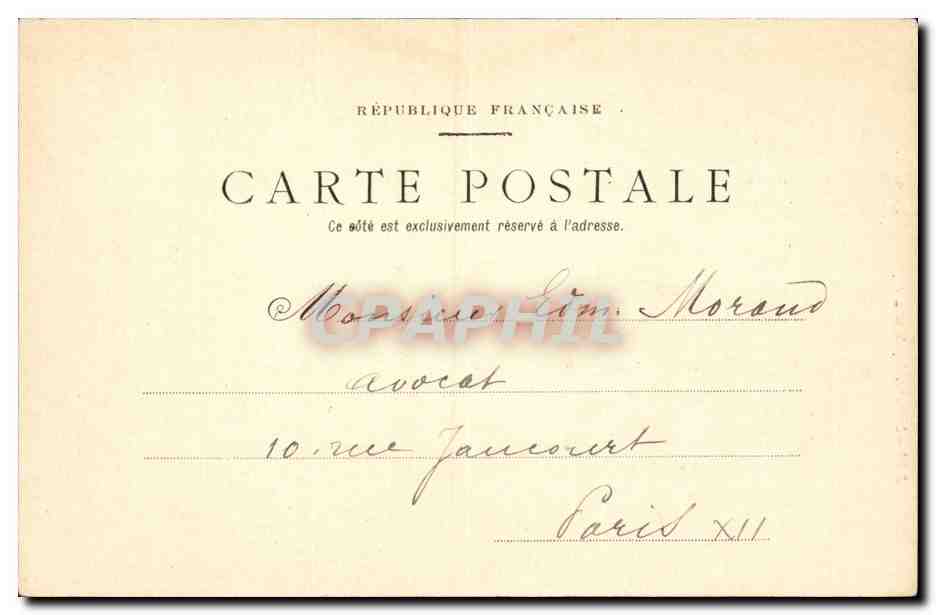 RÉPUBLIQUE FRANÇAISE
CARTE POSTALE
Ce côté est exclusivement réservé à l'adresse.
CPAPHIL
Monsieur Edm. Moraud
avocat
10. rue Jaucourt
Paris XII